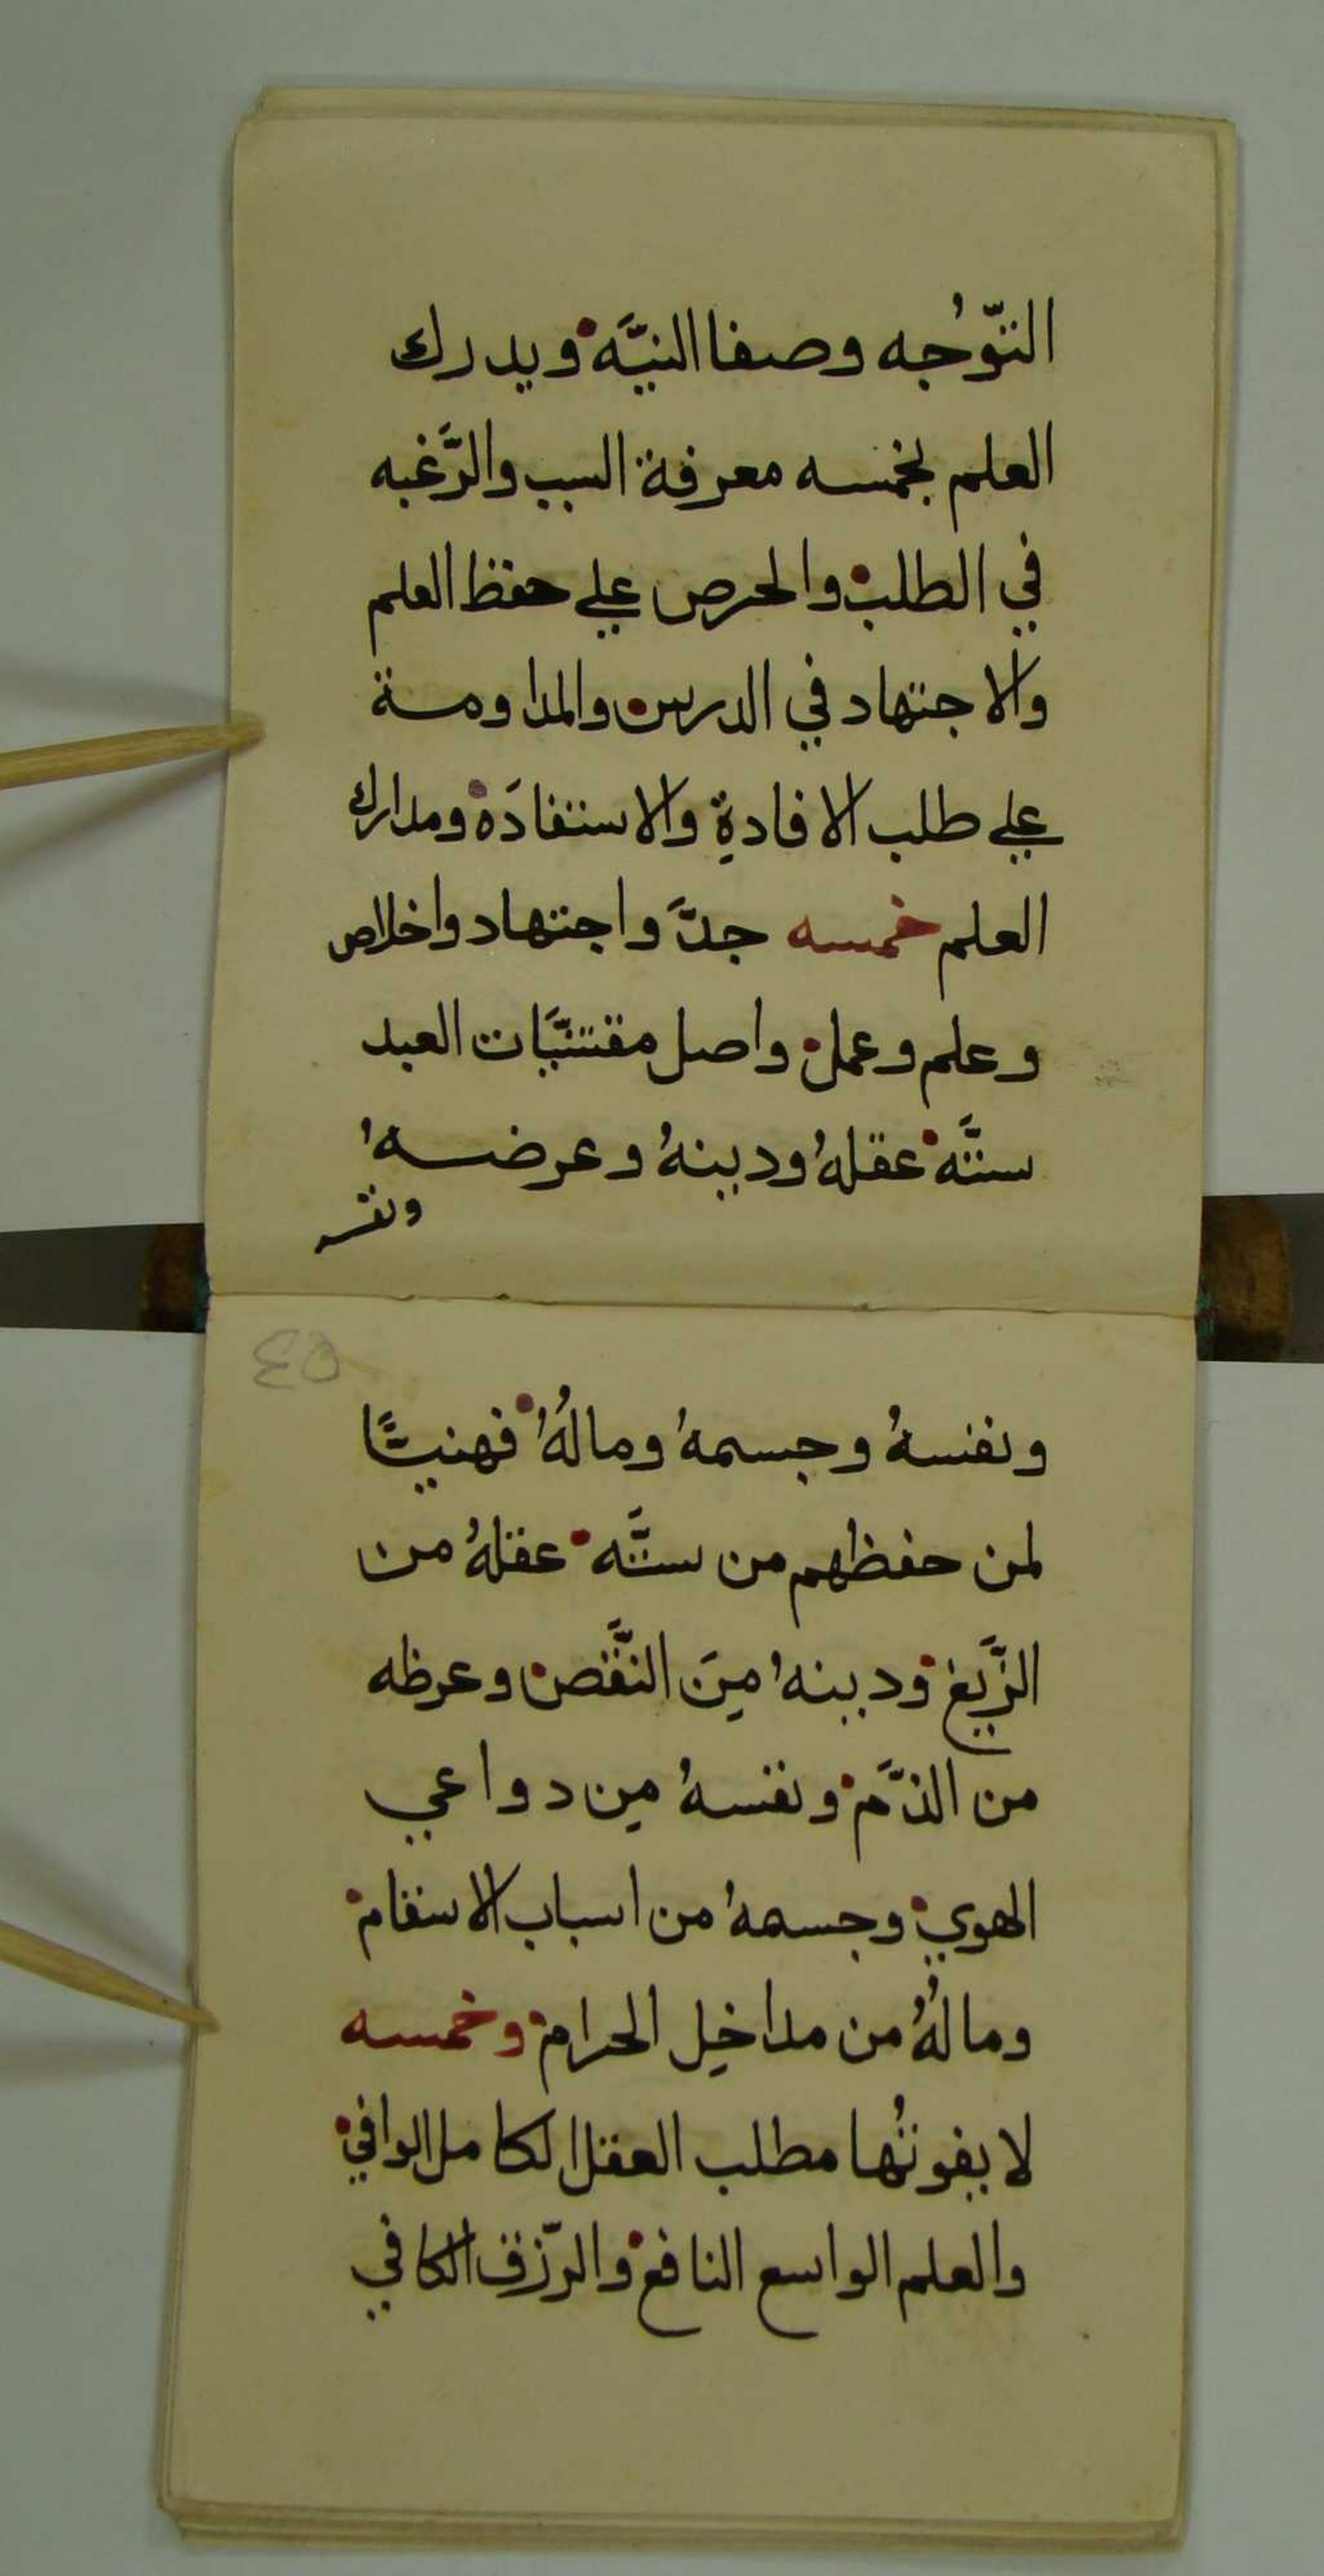 التّوُجه وصفا النيَّة ويدرك
العلم بخمسه معرفة السبب والرَّغبه
في الطلب والحرص علي حفظ العلم
والاجتهاد في الدرس والمداومة
علي طلب الافادةِ والاستفادَه ومدارك
العلم خمسه جدَّ واجتهاد واخلاص
وعلم وعمل واصل مقتنيَّات العبد
ستَّه عقلهُ ودينهُ وعرضهُ
ونفسه
٤٥
ونفسهُ وجسمهُ ومالُهُ فهنيئًا
لمن حفظهم من ستَّه عقلهُ من
الزَّيغ ودينهُ مِنَ النَّقص وعرظه
من الذَّم ونفسهُ مِن دواعي
الهوي وجسمهُ من اسباب الاسقام
ومالُهُ من مداخِل الحرام وخمسه
لا يفوتُها مطلب العقل الكامل الوافي
والعلم الواسع النافع والرّزق الكافي